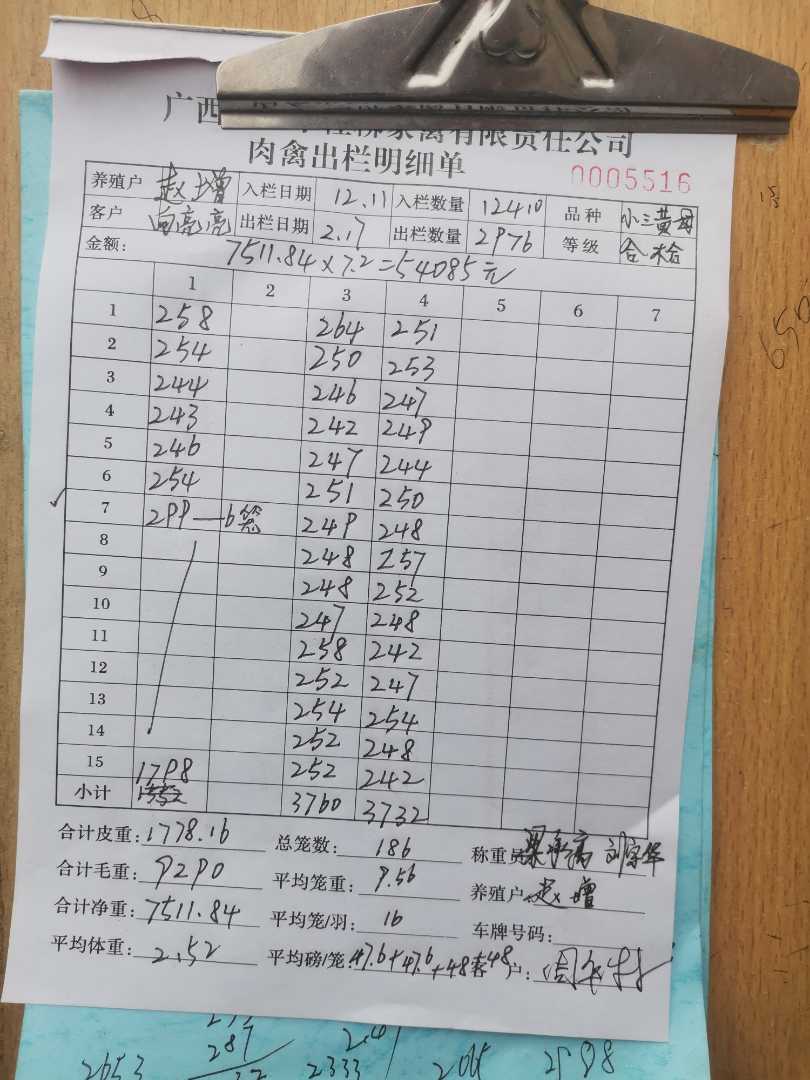 广西 桂柳家禽有限责任公司
肉禽出栏明细单
0005516
养殖户 赵增 入栏日期 12.11 入栏数量 12410 品种 小三黄母
客户 向亮亮 出栏日期 2.17 出栏数量 2976 等级 合格
金额: 7511.84×7.2=54085元
1 2 3 4 5 6 7
1 258 264 251
2 254 250 253
3 244 246 247
4 243 242 249
5 246 247 244
6 254 251 250
7 299—6笼 249 248
8 248 257
9 248 252
10 247 248
11 258 242
12 252 247
13 254 254
14 252 248
15 1798 252 242
小计 3760 3732
合计皮重: 1778.16 总笼数: 186 称重员
合计毛重: 9290 平均笼重: 9.56 养殖户: 赵增
合计净重: 7511.84 平均笼/羽: 16 车牌号码:
平均体重: 2.52 平均磅/笼: 47.6+47.6+48+48 客户:
287
2653 2333 2598